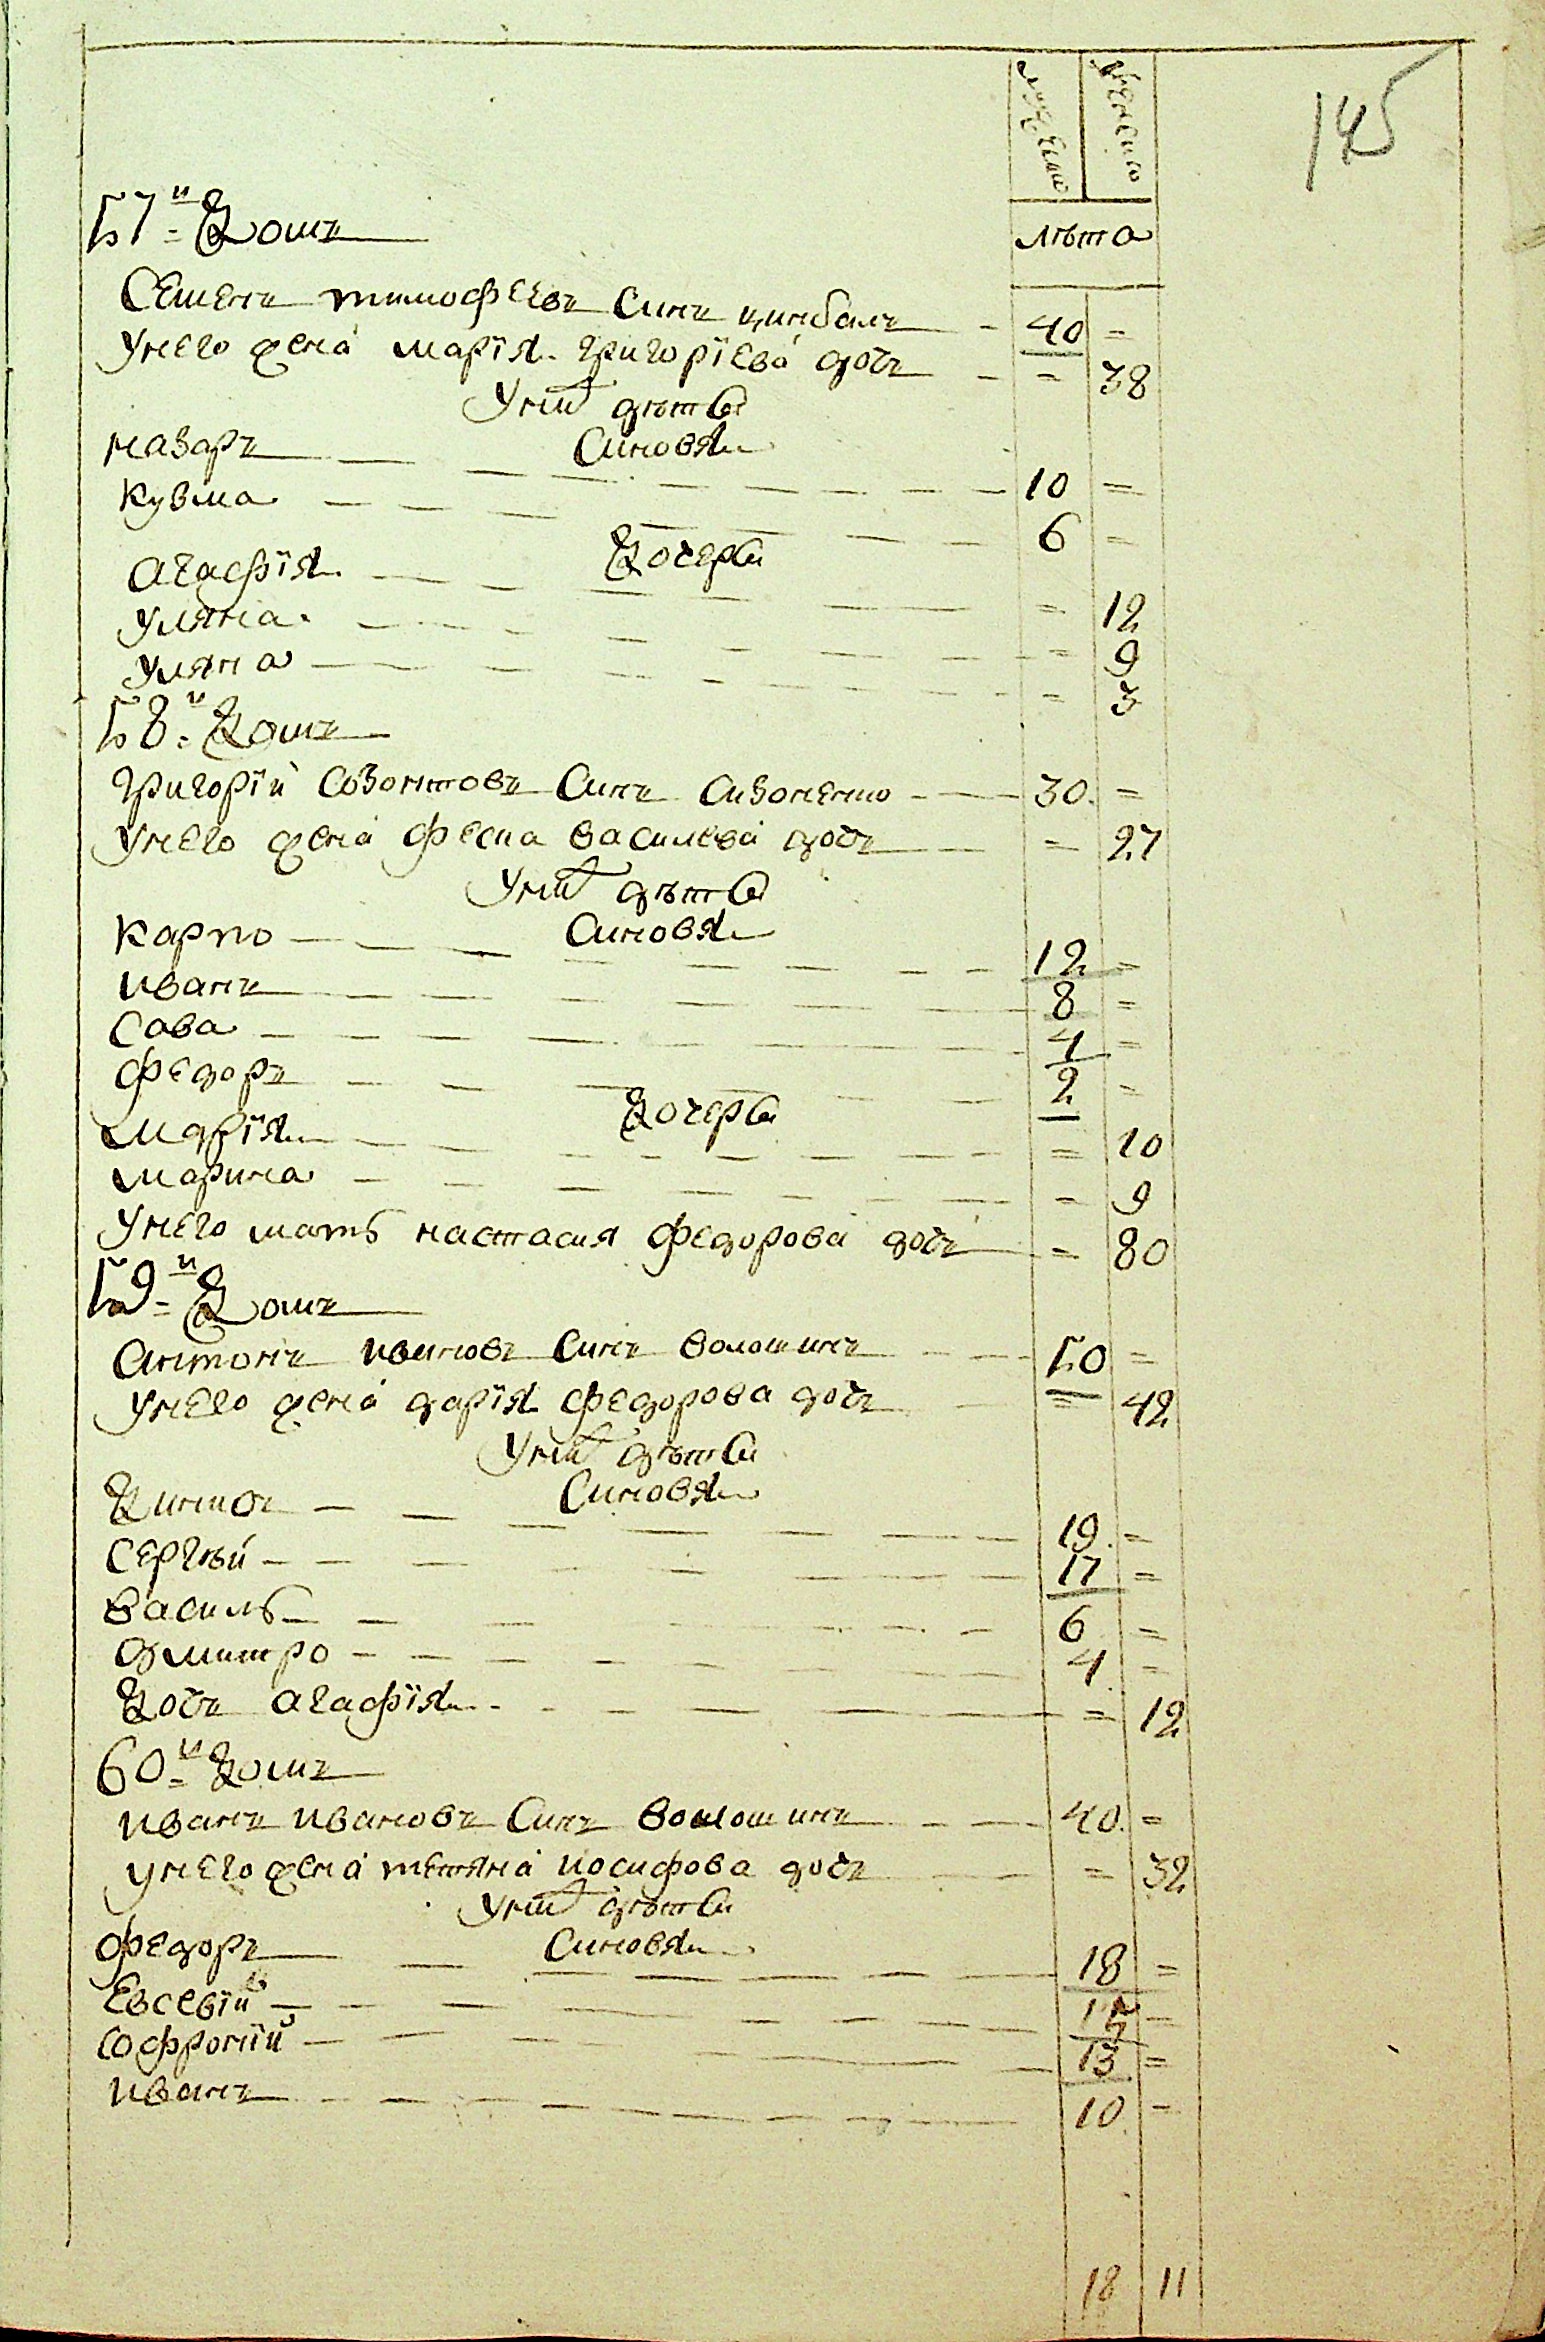 145
мужеска женска
лѣта
57й Домъ
Семенъ тимофѣевъ Синъ цимбалъ 40 =
Унего жена марїя григорїева дочъ = 38
Унихъ дѣти
Синовя
назаръ 10 =
кузма 6 =
Дочери
агафїя = 12
уляна = 9
уляна = 3
58й Домъ
григорїй Созонтовъ Синъ Сизоненко 30 =
Унего жена феска василева дочъ = 27
Унихъ дѣти
Синовя
карпо 12 =
иванъ 8 =
Сава 4 =
федоръ 2 =
Дочери
марїя = 10
марина = 9
Унего мать настасия федорова дочъ = 80
59й Домъ
Антонъ ивановъ Синъ волошинъ 50 =
Унего жена дарїя федорова дочъ = 42
Унихъ дѣти
Синовя
Динисъ 19 =
Сергѣй 17 =
василь 6 =
дмитро 4 =
Дочъ агафїя = 12
60й Домъ
иванъ ивановъ Синъ волошинъ 40 =
унего жена тетяна иосифова дочъ = 32
Унихъ дѣти
Синовя
федоръ 18 =
Евсевїй 15 =
Софронїй 13 =
иванъ 10 =
18 11